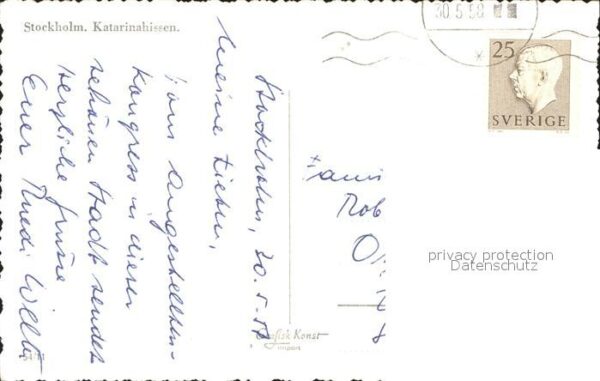 Stockholm. Katarinahissen.
30.5.58
25
SVERIGE
Stockholm, 30.5.58
Meine Lieben,
Vom Angestellten-
kongress in dieser
schönen Stadt sendet
herzliche Grüsse
Euer Ruedi
Fami
Rob
privacy protection
Datenschutz
Grafisk Konst